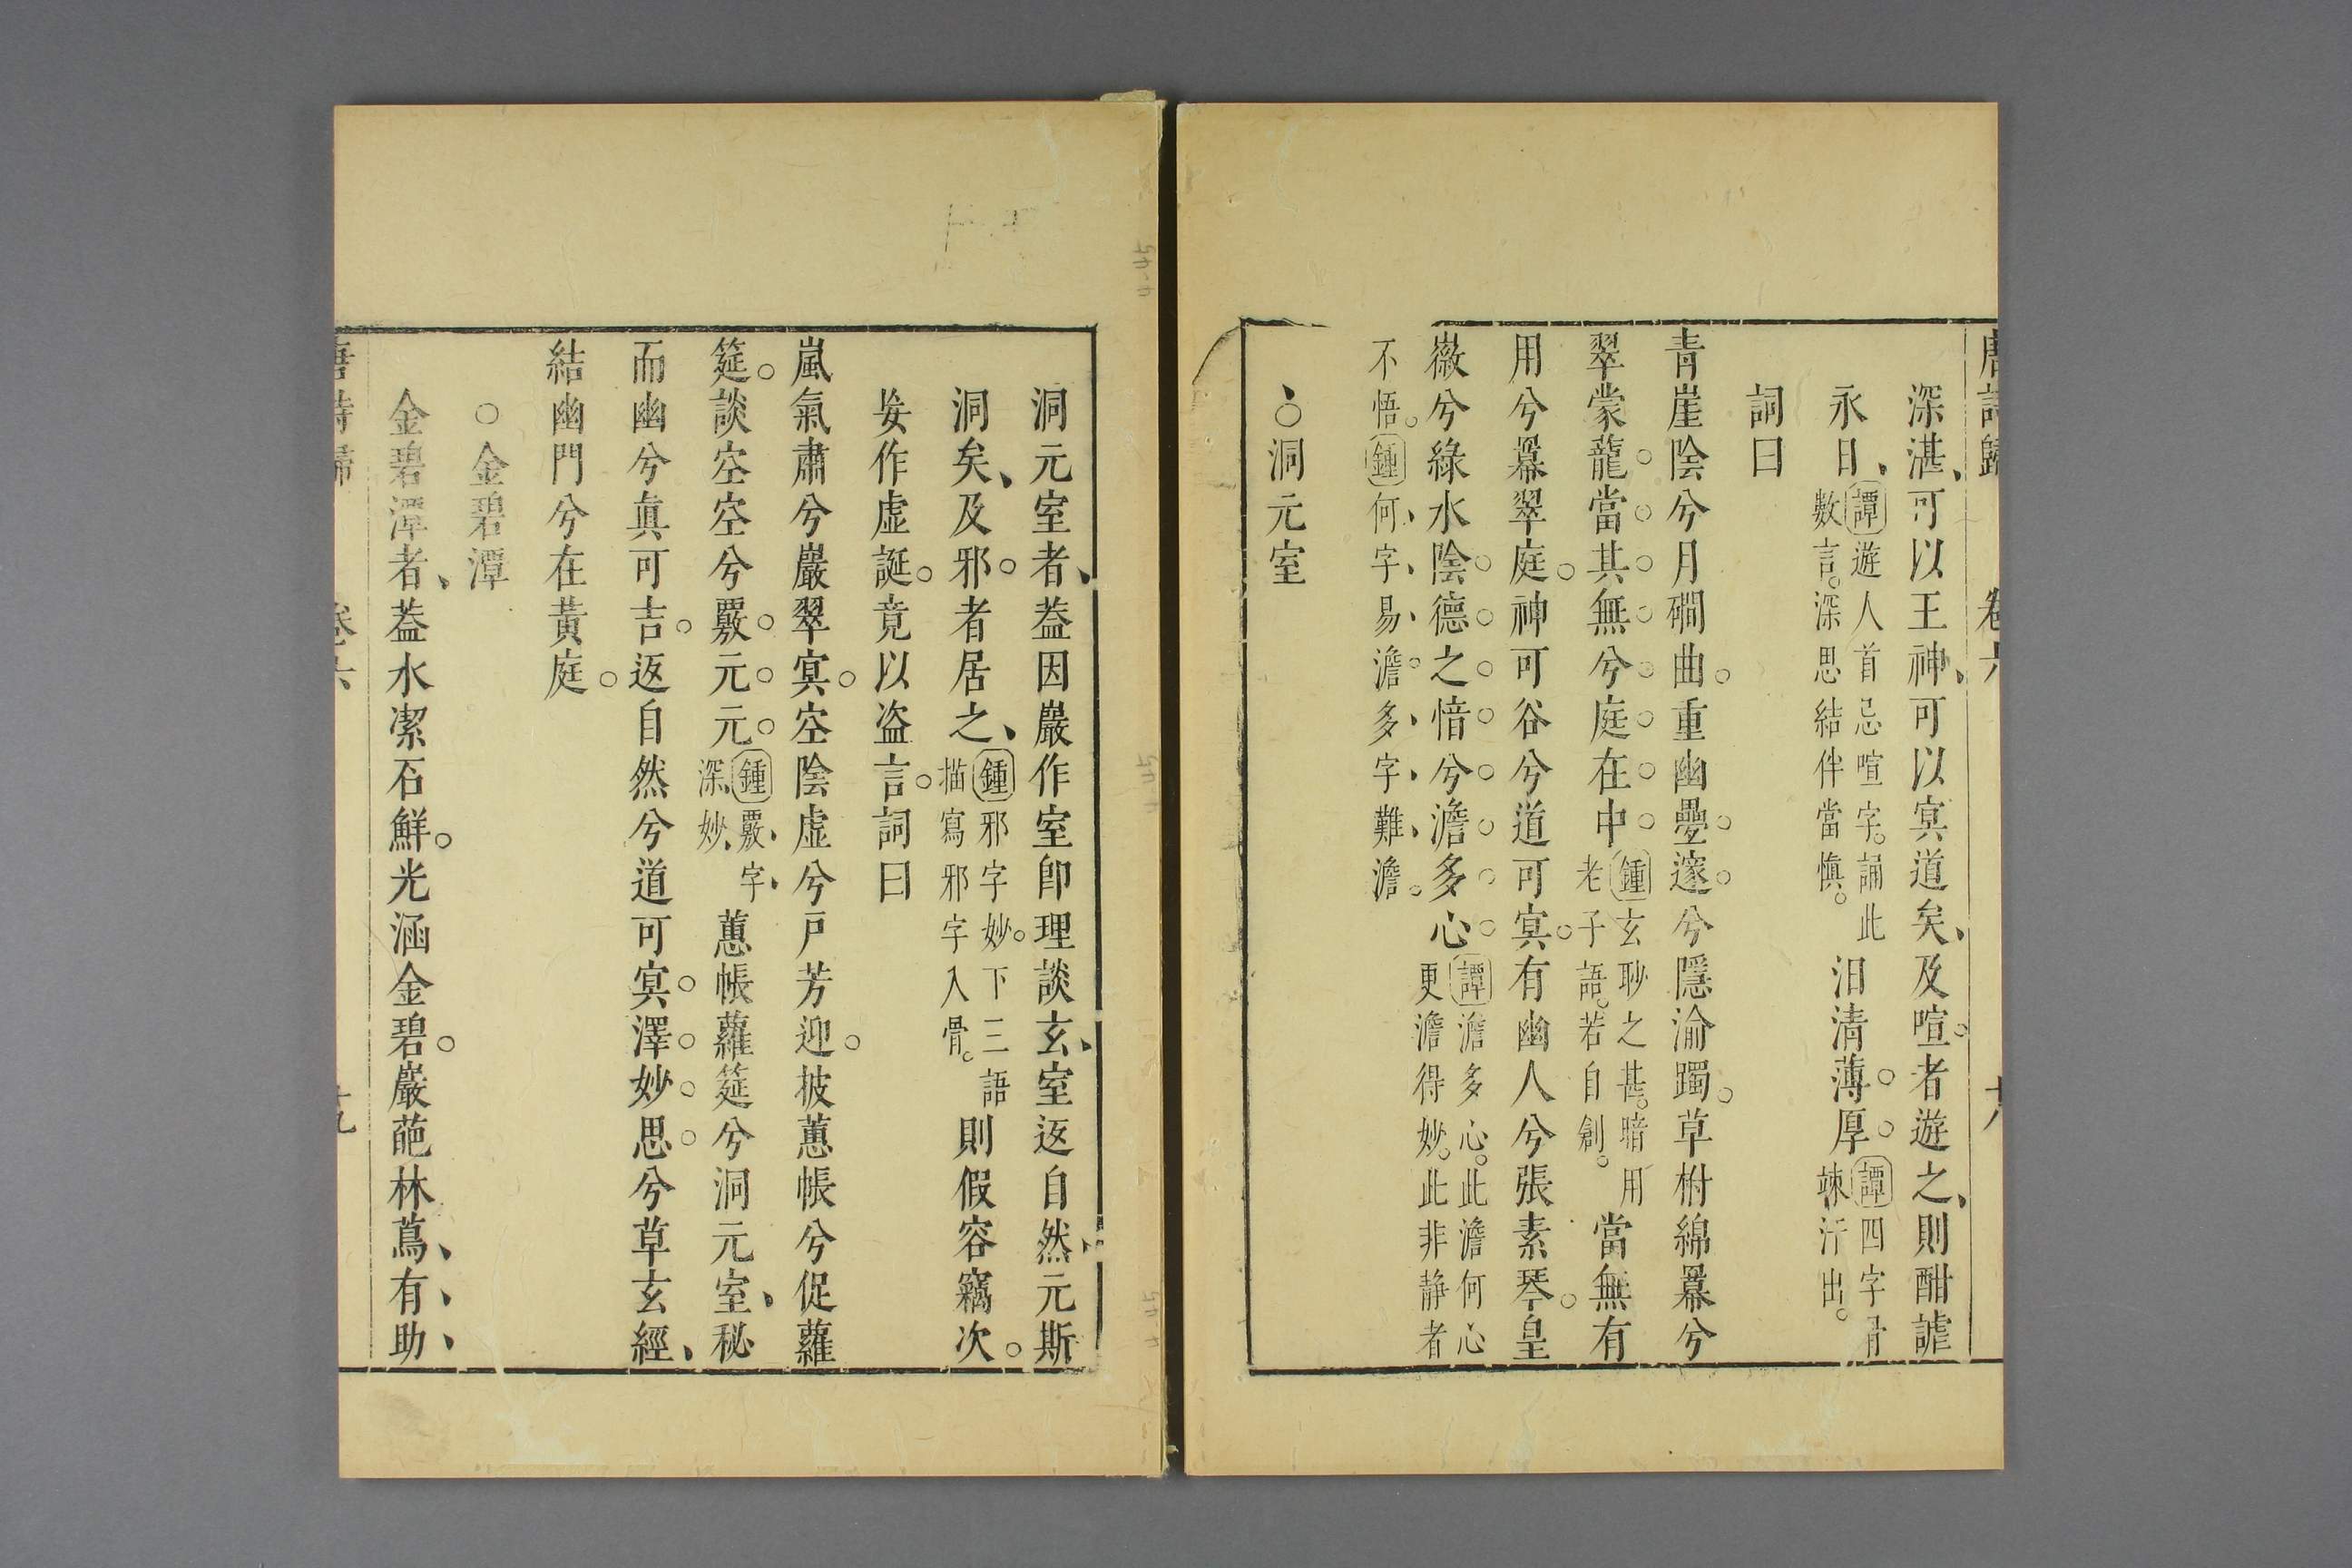 唐詩歸 卷六 十八
深湛可以王神可以㝠道矣及喧者遊之則酣謔
永日譚遊人首忌喧字誦此
數言深思結伴當慎汨清薄厚譚四字骨
竦汗出
詞曰
青崖陰兮月磵曲重幽疊邃兮隱淪躅草樹綿羃兮
翠蒙龍當其無兮庭在中鍾玄眇之甚暗用
老子語若自創當無有
用兮羃翠庭神可谷兮道可㝠有幽人兮張素琴皇
徽兮綠水陰德之愔兮澹多心譚澹多心此澹何心
更澹得妙此非静者
不悟鍾何字易澹多字難澹
○洞元室
洞元室者葢因巖作室卽理談玄室返自然元斯
洞矣及邪者居之鍾邪字妙下三語
描寫邪字入骨則假容竊次
妄作虛誕竟以盗言詞曰
嵐氣肅兮巖翠㝠空陰虛兮戸芳迎披蕙帳兮促蘿
筵談空空兮覈元元鍾覈字
深妙蕙帳蘿筵兮洞元室秘
而幽兮真可吉返自然兮道可㝠澤妙思兮草玄經
結幽門兮在黃庭
○金碧潭
金碧潭者葢水潔石鮮光涵金碧巖葩林蔦有助
唐詩歸 卷六 十九